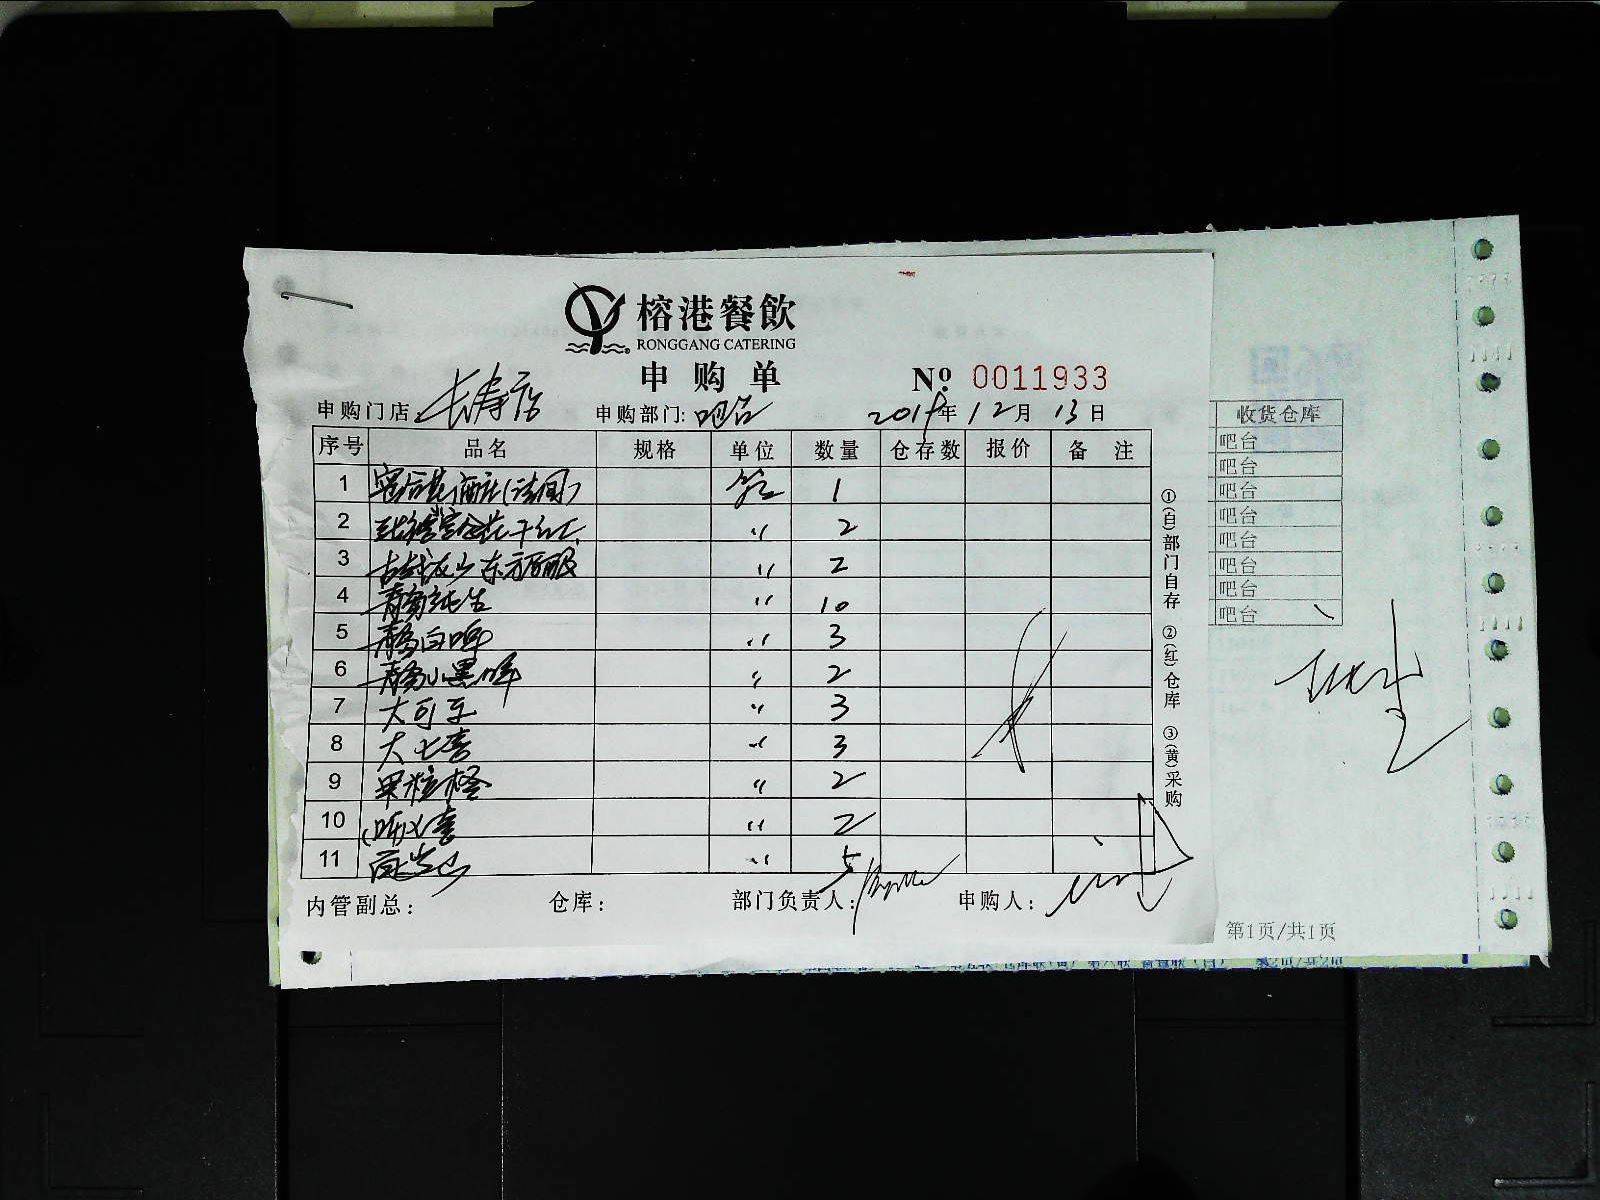 榕港餐飲
RONGGANG CATERING
申购单 № 0011933
申购门店: 长寿店 申购部门: 吧台 2019年12月13日
序号 品名 规格 单位 数量 仓存数 报价 备注
1 酒庄(法国) 箱 1
2 干红 〃 2
3 东方 〃 2
4 青岛纯生 〃 10
5 青岛白啤 〃 3
6 青岛小黑啤 〃 2
7 大可乐 〃 3
8 大七喜 〃 3
9 果粒橙 〃 2
10 (听)七喜 〃 2
11 〃 5
内管副总: 仓库: 部门负责人: 申购人:
①(白)部门自存 ②(红)仓库 ③(黄)采购
收货仓库
吧台
吧台
吧台
吧台
吧台
吧台
吧台
吧台
第1页/共1页